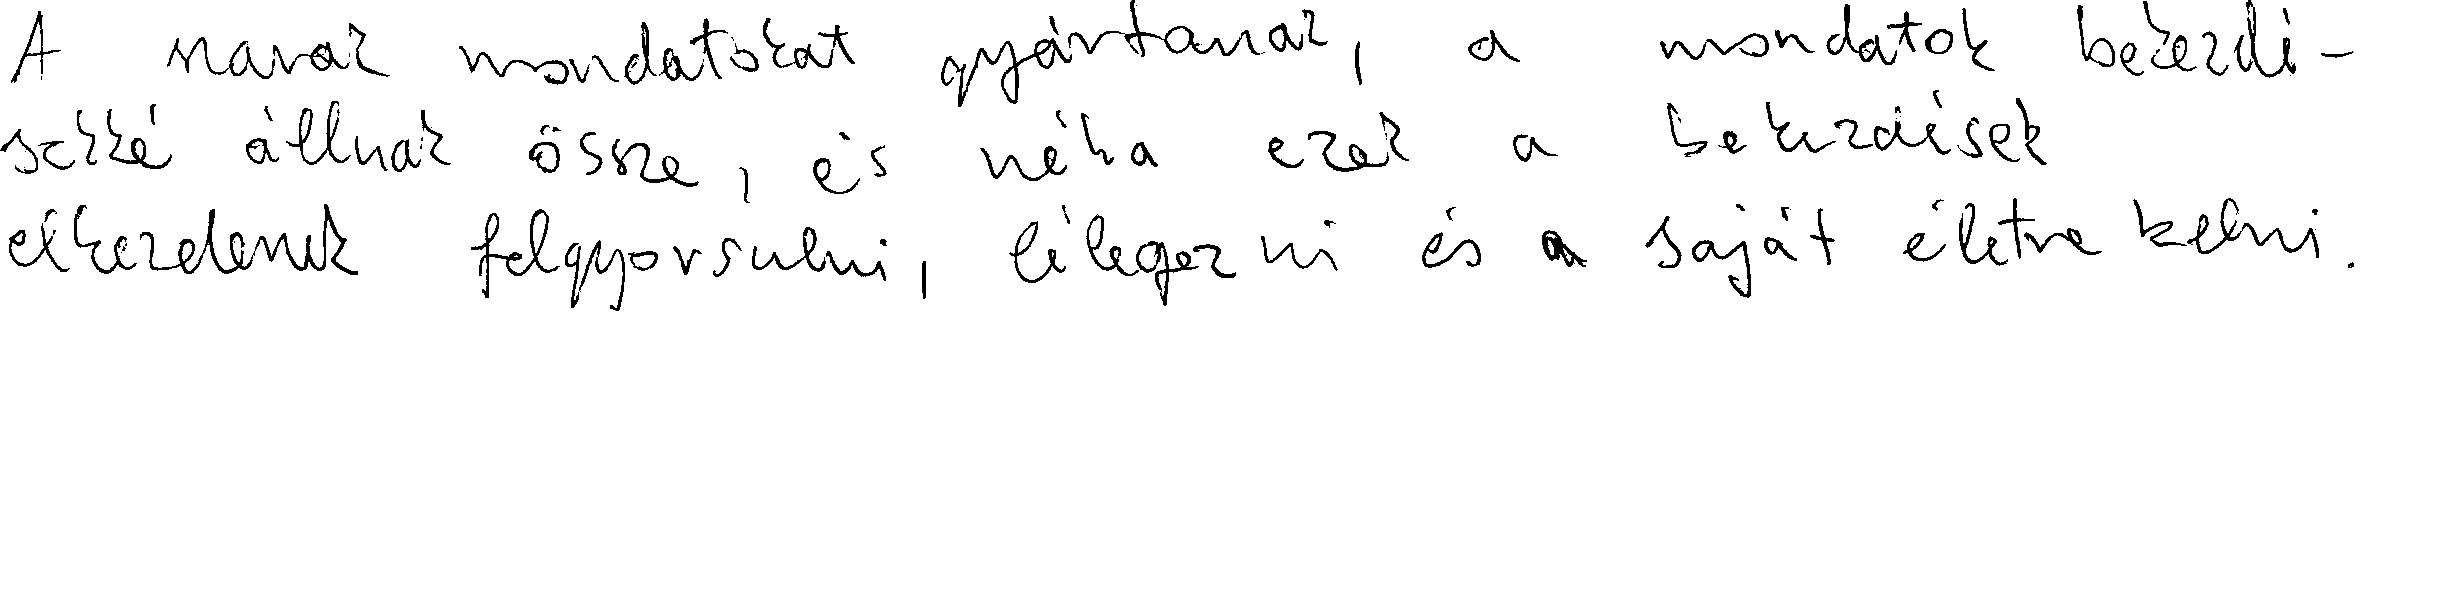 A szavak mondatokat gyártanak, a mondatok bekezdé-
sekké állnak össze, és néha ezek a bekezdések
elkezdenek felgyorsulni, lélegezni és a saját életre kelni.